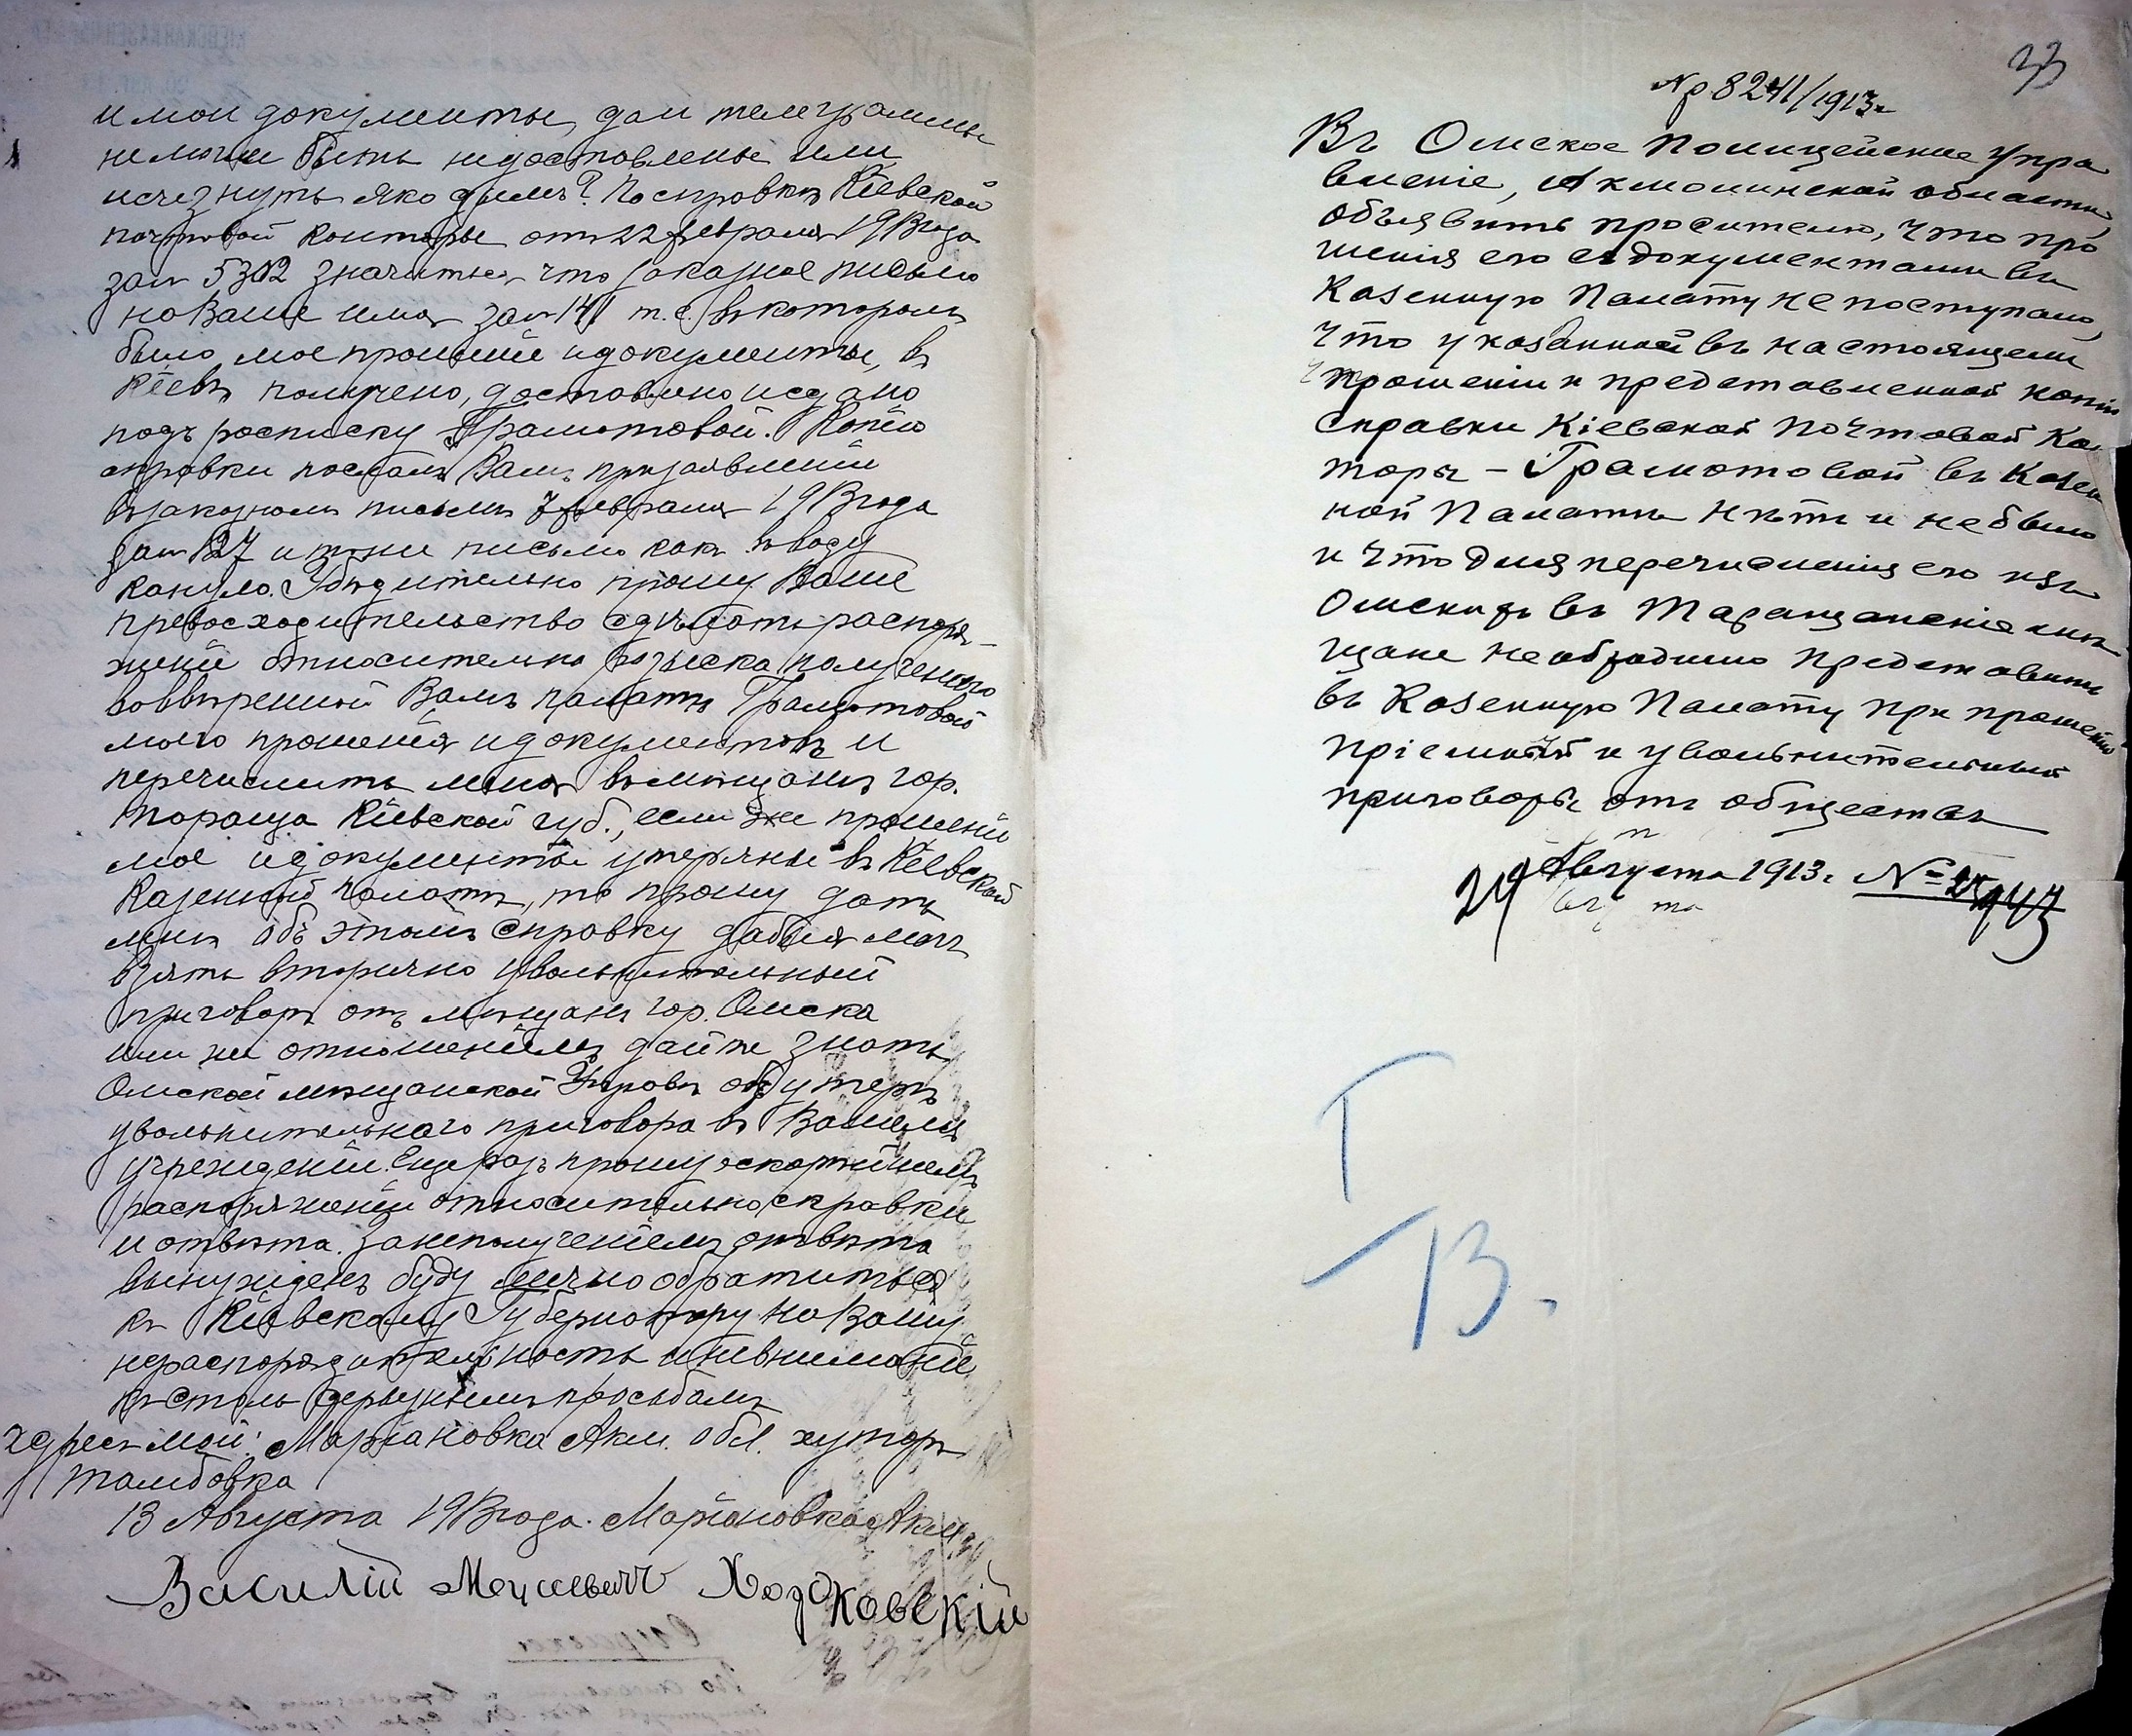 и мои документы, даи телеграммы
не могли быть недоставлены или
исчезнуть яко дымъ? По справкѣ Кіевской
почтовой конторы отъ 22 февраля 1913 года
за № 5302 значится, что заказное письмо
на Ваше имя за № 141 т. с. въ которомъ
было мое прошеніе и документы, въ
Кіевѣ получено, доставлено и сдано
подъ росписку Грамотовой. Копію
справки послалъ Вамъ при заявленіи
въ заказномъ письмѣ февраля 1913 года
за № 127 и это письмо какъ въ воду
кануло. Убѣдительно прошу Ваше
превосходительство сдѣлать распоря-
женіе относительно розыска полученнаго
во ввѣренной Вамъ палатѣ Грамотовой
моего прошенія и документовъ и
перечислить меня въ мѣщане гор.
Тараща Кіевской губ., если же прошеніе
мое и документы утеряны въ Кіевской
Казенной палатѣ, то прошу дать
мнѣ объ этомъ справку дабы я могъ
взять вторично увольнительный
приговоръ отъ мѣщанъ гор. Омска
или же отношеніемъ дайте знать
Омской мѣщанской Управѣ объ утерѣ
увольнительнаго приговора въ Вашемъ
учрежденіи. Еще разъ прошу о скорѣйшемъ
распоряженіи относительно справки
и отвѣта. За неполученіемъ отвѣта
вынужденъ буду лично обратиться
къ Кіевскому Губернатору на Вашу
нераспорядительность и невниманіе
къ столь серьезнымъ просьбамъ
Адресъ мой: Маріановка Акм. обл. хуторъ
Тамбовка
13 Августа 1913 года. Маріановка Акм.
Василій Моисеевичъ Ходаковскій
33
Нр 8241/1913 г.
Въ Омское Полицейское Упра
вленіе, Акмолинской области,
объявить просителю, что про
шенія его съ документами въ
Казенную Палату не поступало,
что указанной въ настоящемъ
прошеніи и представленной копіи
справки Кіевской Почтовой Кон
торы – Грамотовой въ Казен
ной Палатѣ нѣтъ и не было
и что для перечисленія его изъ
Омскихъ въ Таращанскіе мѣ
щане необходимо представить
въ Казенную Палату при прошеніи
пріемный и увольнительный
приговоры отъ обществъ
29 Августа 1913 г. №
Т
В.